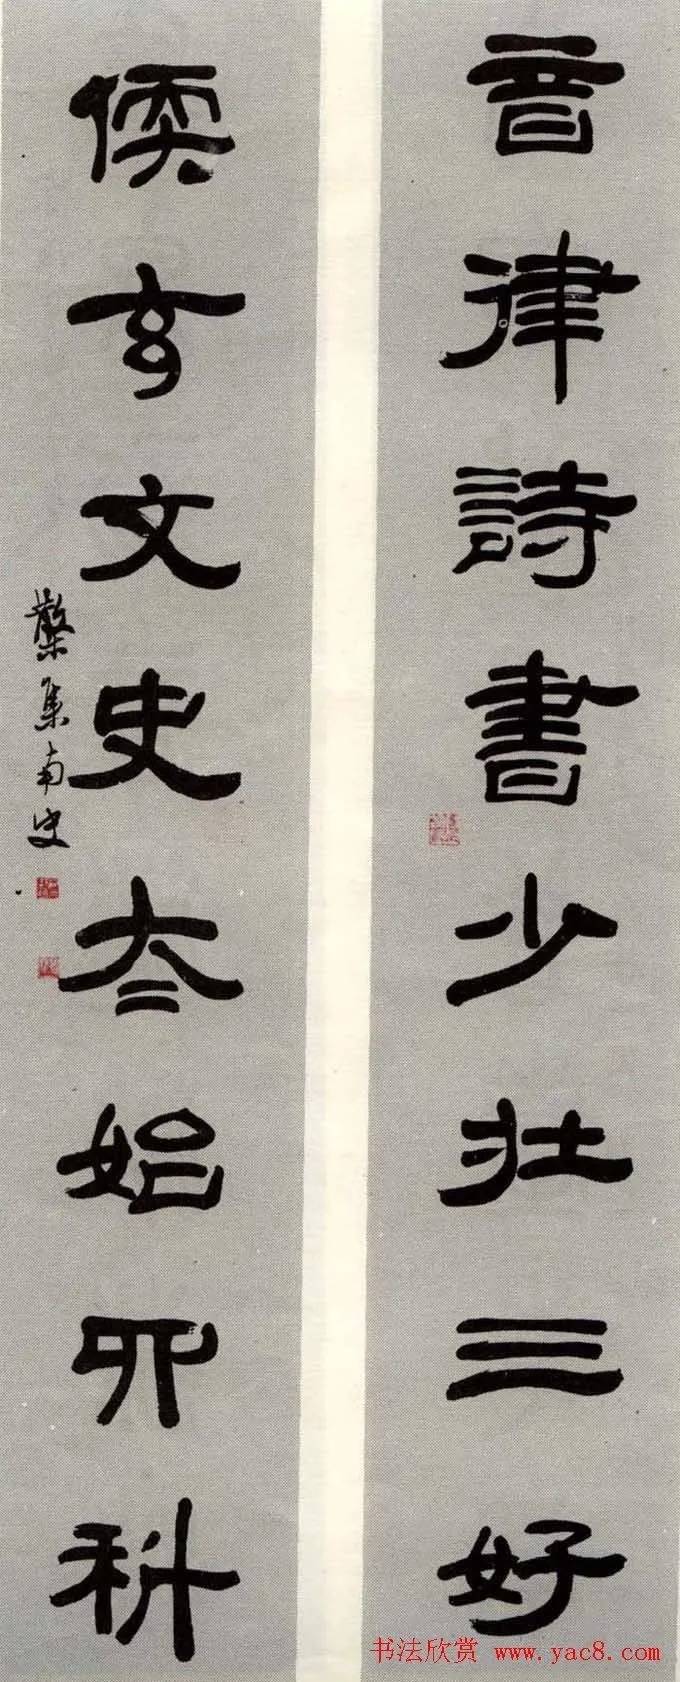 音律詩書少壯三好
偄玄文史夳始四科
散木集南史
书法欣赏 www.yac8.com